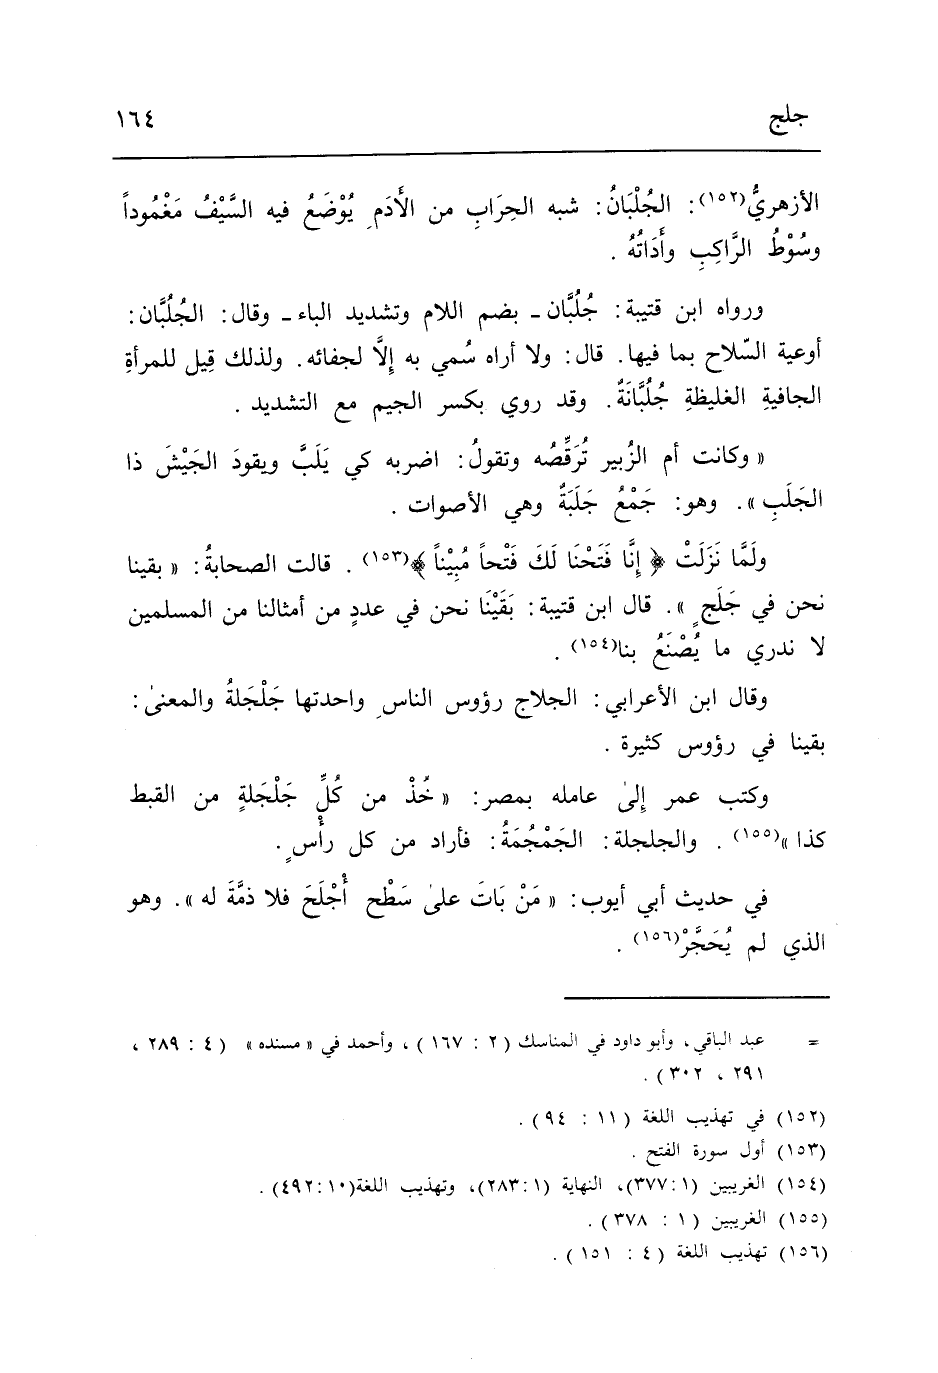 جلج ١٦٤
الأزهريُّ(١٥٢): الجُلْبَانُ: شبه الجِرَابِ من الأَدَمِ يُوْضَعُ فيه السَّيْفُ مَغْمُوداً
وسُوْطُ الرَّاكِبِ وأَدَاتُهُ .
ورواه ابن قتيبة: جُلُبَّان ـ بضم اللام وتشديد الباء ـ وقال: الجُلُبَّان:
أوعية السِّلاح بما فيها. قال: ولا أراه سُمي به إِلَّا لجفائه. ولذلك قِيل للمرأةِ
الجافيةِ الغليظةِ جُلُبَّانَةٌ. وقد روي بكسر الجيم مع التشديد .
« وكانت أم الزُبير تُرَقِّصُه وتقولُ: اضربه كي يَلَبَّ ويقودَ الجَيْشَ ذا
الجَلَبِ ». وهو: جَمْعُ جَلَبَةٌ وهي الأصوات .
ولَمَّا نَزَلَتْ ﴿ إِنَّا فَتَحْنَا لَكَ فَتْحاً مُبِيْناً ﴾(١٥٣) . قالت الصحابةُ: « بقينا
نحن في جَلَجٍ ». قال ابن قتيبة: بَقَيْنَا نحن في عددٍ من أمثالنا من المسلمين
لا ندري ما يُصْنَعُ بنا(١٥٤) .
وقال ابن الأعرابي: الجلاج رؤوس الناسِ واحدتها جَلْجَلةُ والمعنىٰ:
بقينا في رؤوس كثيرة .
وكتب عمر إلىٰ عامله بمصر: « خُذْ من كُلِّ جَلْجَلةٍ من القبط
كذا »(١٥٥) . والجلجلة: الجَمْجُمَةُ: فأراد من كل رأْسٍ .
في حديث أبي أيوب: « مَنْ بَاتَ علىٰ سَطْحِ أَجْلَحَ فلا ذمَّةَ له ». وهو
الذي لم يُحَجَّرْ(١٥٦) .
= عبد الباقي، وأبو داود في المناسك ( ٢ : ١٦٧ ) ، وأحمد في « مسنده » ( ٤ : ٢٨٩ ،
٢٩١ ، ٣٠٢ ) .
(١٥٢) في تهذيب اللغة ( ١١ : ٩٤ ) .
(١٥٣) أول سورة الفتح .
(١٥٤) الغريبين (١ :٣٧٧)، النهاية (١ :٢٨٣)، وتهذيب اللغة(١٠ :٤٩٢) .
(١٥٥) الغريبين ( ١ : ٣٧٨ ) .
(١٥٦) تهذيب اللغة ( ٤ : ١٥١ ) .